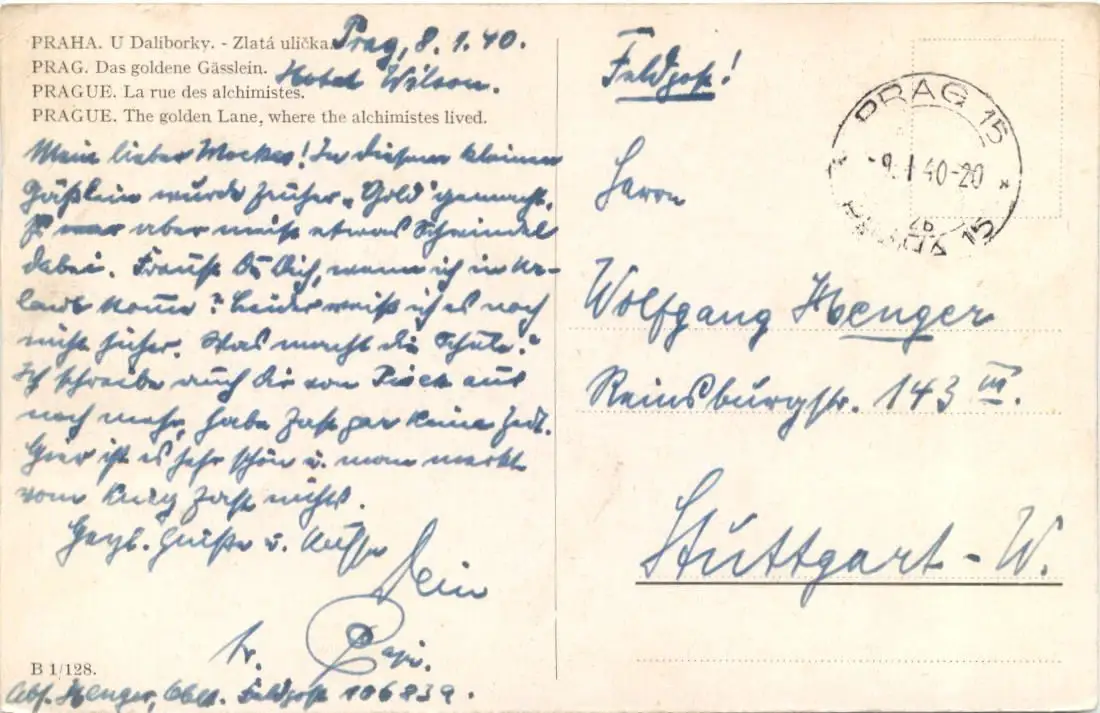 PRAHA. U Daliborky. - Zlatá ulička.
PRAG. Das goldene Gässlein.
PRAGUE. La rue des alchimistes.
PRAGUE. The golden Lane, where the alchimistes lived.
Prag, 8.1.40.
Hotel Wilson.
Mein lieber! In diesem kleinen
Gäßlein wurde früher „Gold" gemacht.
Es war aber meist etwas Schwindel
dabei. Freust Du Dich, wenn ich in Ur-
laub komme? Leider weiß ich es noch
nicht sicher. Was macht die Schule?
Ich schreibe auch Dir von aus
noch mehr, habe fast gar keine Zeit.
Hier ist es sehr schön u. man merkt
vom Krieg fast nichts.
Herzl. Grüße u. Küsse
Dein
Papi.
B 1/128.
Abs. Henger, Feldpost 10683a.
Feldpost!
PRAG 15
-9. I 40-20
2b
PRAHA 15
Herrn
Wolfgang Henger
Reinsburgstr. 143 III.
Stuttgart-W.